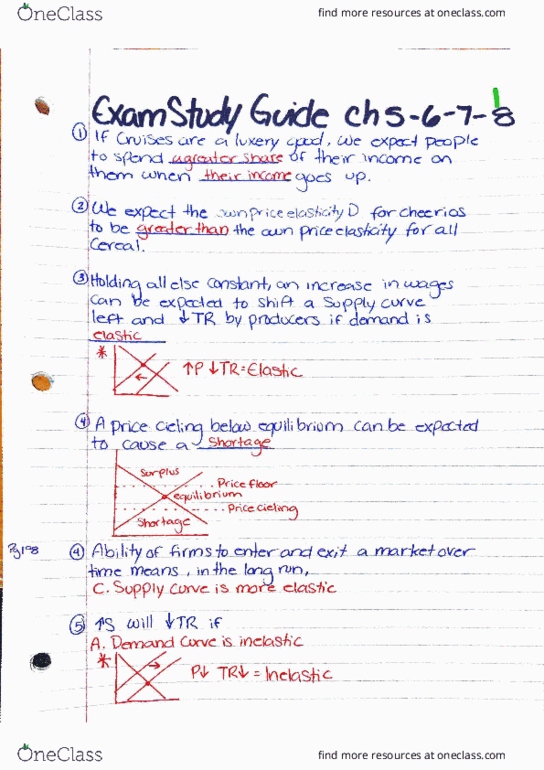 OneClass
find more resources at oneclass.com
Exam Study Guide ch 5-6-7-8
① If Cruises are a luxery good, we expect people
to spend a greater share of their income on
them when their income goes up.
② We expect the own price elasticity D for cheerios
to be greater than the own price elasticity for all
Cereal.
③ Holding all else constant, an increase in wages
can be expected to shift a supply curve
left and ↓TR by producers if demand is
elastic
* ↑P ↓TR = Elastic
④ A price cieling below equilibrium can be expected
to cause a shortage
Surplus
Price floor
equilibrium
Price cieling
Shortage
④ Ability of firms to enter and exit a market over
time means, in the long run,
C. Supply curve is more elastic
⑤ ↑S will ↓TR if
A. Demand Curve is inelastic
* P↓ TR↓ = Inelastic
OneClass
find more resources at oneclass.com